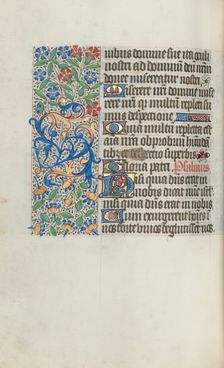 nibus domine sue ita oculi
nostri ad dominū deū nr̄m
donec misereatur nostri
Miserere nr̄i domine mise
rere nr̄i q̄ multū repleti su
mus despectione
Quia multū repleta est
aīa nr̄a obprobriū habundā
tibus et despectio superbis
Gloria patri Psalmus
Nisi quia dn̄s erat in
nobis dicat nūc isrl̄
nisi quia dn̄s erat in nobis
Cum exurgerent hoīes ī
nos forte vivos deglutissēt nos